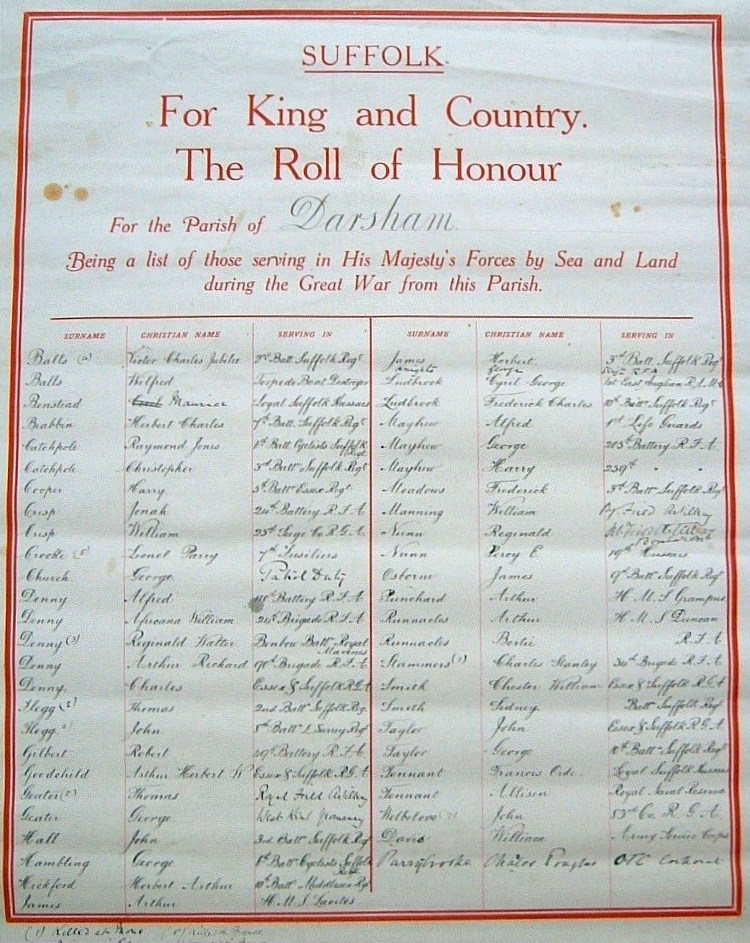 SUFFOLK.
For King and Country.
The Roll of Honour
For the Parish of Darsham.
Being a list of those serving in His Majesty's Forces by Sea and Land
during the Great War from this Parish.
SURNAME CHRISTIAN NAME SERVING IN
Balls Victor Charles Jubilee 2nd Batt Suffolk Regt
Balls Wilfred Torpedo Boat Destroyer
Benstead Maurice Loyal Suffolk Hussars
Brabbin Herbert Charles 7th Batt. Suffolk Regt
Catchpole Raymond Jons 1st Batt. Cyclists Suffolk Regt
Catchpole Christopher 3rd Batt Suffolk Regt
Cooper Harry Batt Essex Regt
Crisp Jonah Battery R.F.A.
Crisp William 23rd Siege Co. R.G.A.
Crooke Lionel Parry 7th Fusiliers
Church George Duty
Denny Alfred Battery R.F.A.
Denny Africana William Brigade R.F.A.
Denny (3) Reginald Walter Benbow Batt. Royal Marines
Denny Arthur Richard Brigade R.F.A.
Denny Charles Essex & Suffolk R.G.A.
Flegg Thomas 2nd Batt Suffolk Regt
Flegg John Batt. E. Surrey Regt
Gilbert Robert Battery R.F.A.
Goodchild Arthur Herbert W Essex & Suffolk R.G.A.
Geater Thomas Royal Field Artillery
Geater George West Kent Yeomanry
Hall John 3rd Batt Suffolk Regt
Hambling George Batt Cyclists Suffolk Regt
Hickford Herbert Arthur Batt Middlesex Rgt
James Arthur H.M.S.
SURNAME CHRISTIAN NAME SERVING IN
James Herbert 3rd Batt. Suffolk Regt
Knights George R.F.A.
Ludbrook Cyril George 1st East Anglian R.A.M.C.
Ludbrook Frederick Charles Batt. Suffolk Regt
Mayhew Alfred 1st Life Guards
Mayhew George Battery R.F.A.
Mayhew Harry
Meadows Frederick Batt Suffolk Regt
Manning William Field Artillery
Nunn Reginald
Nunn Percy E. 19th Hussars
Osborne James 9th Batt Suffolk Regt
Punchard Arthur H.M.S. Grampus
Runnacles Arthur H.M.S. Duncan
Runnacles Bertie R.F.A.
Stammers (1) Charles Stanley Brigade R.F.A.
Smith Chester William Essex & Suffolk R.G.A.
Smith Sidney Batt Suffolk Regt
Taylor John Essex & Suffolk R.G.A.
Taylor George Batt Suffolk Regt
Tennant Francis Orde Loyal Suffolk Hussars
Tennant Allison Royal Naval Reserve
John 53rd Co. R.G.A.
Davis William Army Service Corps
Parry Crooke Douglas OTC
(1) Killed at